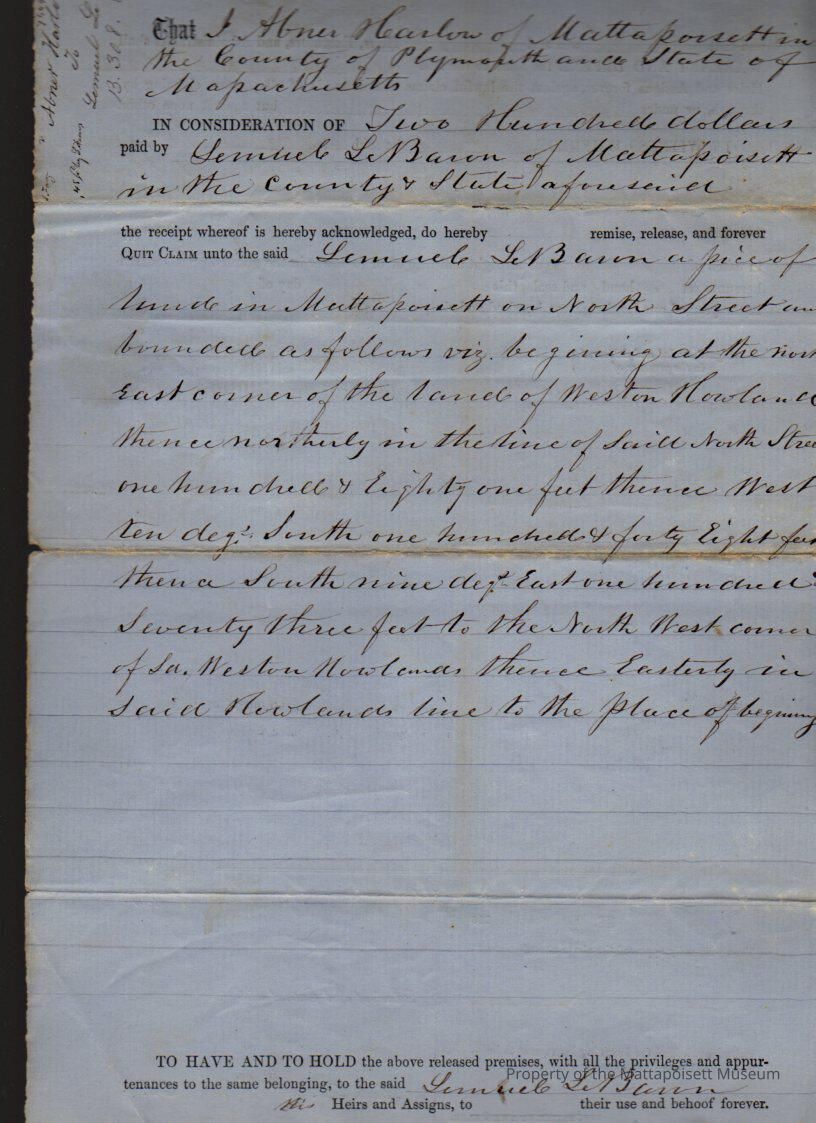 That I Abner Harlow of Mattapoisett in
the County of Plymouth and State of
Massachusetts
IN CONSIDERATION OF Two Hundred dollars
paid by Lemuel LeBaron of Mattapoisett
in the County & State aforesaid
the receipt whereof is hereby acknowledged, do hereby remise, release, and forever
QUIT CLAIM unto the said Lemuel LeBaron a pice of
land in Mattapoisett on North Street an
bounded as follows viz. begining at the nort
East corner of the land of Weston Howland
thence northerly in the line of Said North Stree
one hundred & Eighty one feet thence West
ten degs. South one hundred & forty Eight fee
thence South nine degs. East one hundred &
Seventy three feet to the North West corner
of Sd. Weston Howlands thence Easterly in
said Howlands line to the place of begining
TO HAVE AND TO HOLD the above released premises, with all the privileges and appur-
tenances to the same belonging, to the said Lemuel LeBaron
his Heirs and Assigns, to their use and behoof forever.
Property of the Mattapoisett Museum
Abner Harlo
To
Lemuel L
B. 308.